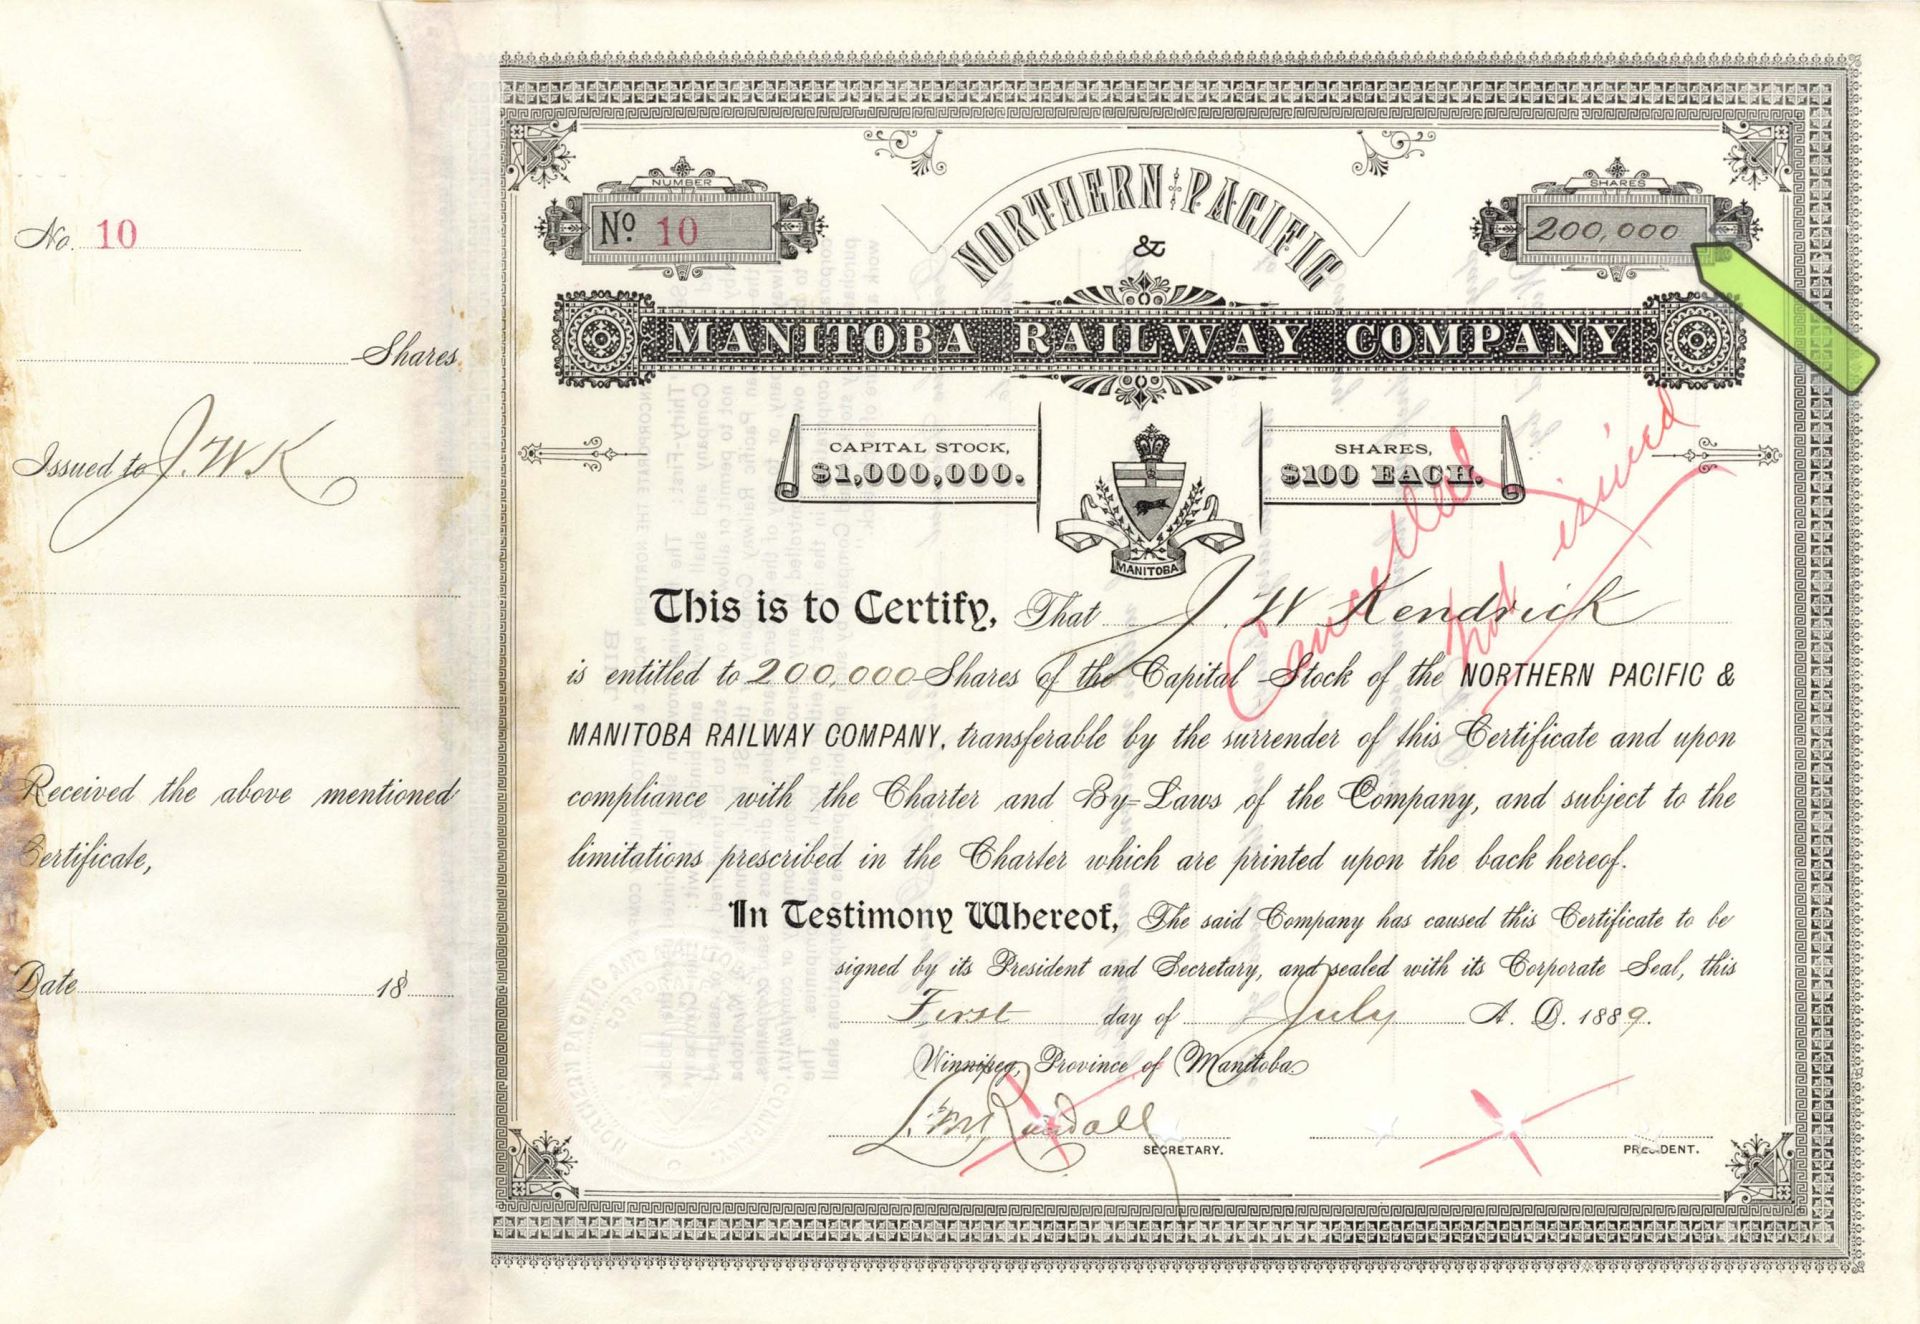 No. 10
Shares
Issued to J. W. K
Received the above mentioned
Certificate,
Date 18
NUMBER
No 10
NORTHERN PACIFIC
&
SHARES
200,000
MANITOBA RAILWAY COMPANY
CAPITAL STOCK,
$1,000,000.
SHARES,
$100 EACH.
MANITOBA
Cancelled
Not issued
This is to Certify, That J. W Kendrick
is entitled to 200,000 Shares of the Capital Stock of the NORTHERN PACIFIC &
MANITOBA RAILWAY COMPANY, transferable by the surrender of this Certificate and upon
compliance with the Charter and By-Laws of the Company, and subject to the
limitations prescribed in the Charter which are printed upon the back hereof.
In Testimony Whereof, The said Company has caused this Certificate to be
signed by its President and Secretary, and sealed with its Corporate Seal, this
First day of July A. D. 1889.
Winnipeg, Province of Manitoba
Randall
SECRETARY.
PRESIDENT.